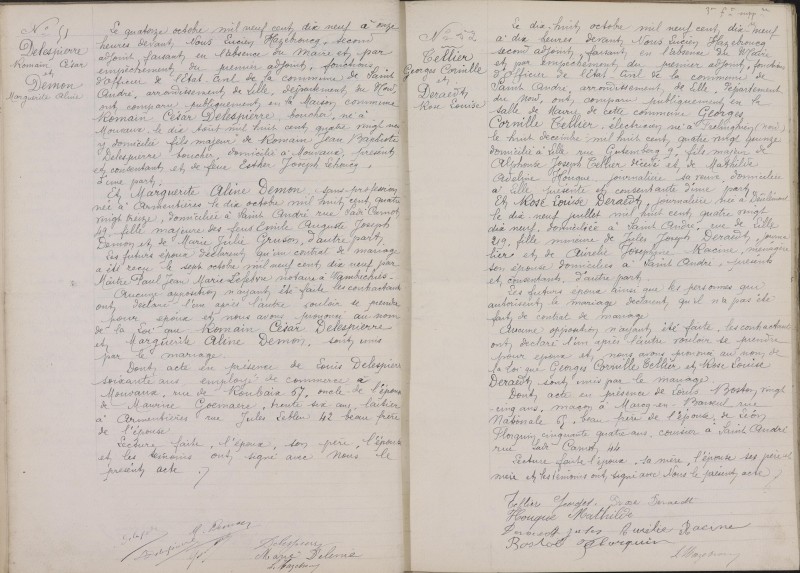 Nº 51
Delespierre
Romain César
et
Demon
Marguerite Aline
Le quatorze octobre mil neuf cent dix neuf à onze
heures devant Nous Lucien Hazebroucq, second
adjoint, faisant en l'absence du Maire et par
empêchement du premier adjoint, fonctions
d'officier de l'État Civil de la commune de Saint
André, arrondissement de Lille, département du Nord,
ont comparu publiquement en la Maison commune
Romain César Delespierre, boucher, né à
Mouvaux, le dix août mil huit cent quatre vingt
domicilié fils majeur de Romain Jean Baptiste
Delespierre boucher, domicilié à Mouvaux, présent
et consentant et de feue Esther Joseph
d'une part,
Et Marguerite Aline Demon sans profession
née à Armentières le dix octobre mil huit cent quatre
vingt treize, domiciliée à Saint André rue Sadi Carnot,
49, fille majeure des feus Emile Auguste Joseph
Demon et de Marie Julie Gruson, d'autre part,
Les futurs époux déclarent qu'un contrat de mariage
a été reçu le sept octobre mil neuf cent dix neuf par
Maître Paul Jean Marie Lefebvre notaire à Wambrechies.
Aucune opposition n'ayant été faite les contractants
ont déclaré l'un après l'autre vouloir se prendre
pour époux et nous avons prononcé au nom
de la Loi que Romain César Delespierre
et Marguerite Aline Demon, sont unis
par le mariage.
Dont acte en présence de Louis Delespierre
soixante ans employé de commerce à
Mouvaux, rue de Roubaix 57, oncle de l'époux
de Maurice Goemaere, trente six ans, laitier
à Armentières rue Jules Lebleu 42 beau frère
de l'épouse.
Lecture faite, l'époux, son père, l'épouse
et les témoins ont signé avec Nous le
présent acte.
M. Demon
Delespierre
L Hazebroucq
Nº 52
Tellier
Georges Corville
et
Deraedt
Rose Louise
Le dix-huit octobre mil neuf cent dix-neuf
à dix heures devant Nous Lucien Hazebroucq
second adjoint, faisant en l'absence du Maire
et par empêchement du premier adjoint, fonctions
d'Officier de l'État Civil de la commune de
Saint André, arrondissement, de Lille, Département
du Nord, ont comparu publiquement en la
salle de Mairie de cette commune Georges
Corville Tellier, électricien, né à Frelinghien (nord)
le huit décembre mil huit cent quatre vingt quinze
domicilié à Lille rue Gutemberg 9, fils majeur de
Alphonse Joseph Tellier décédé et de Mathilde
Adeline Houque journalière sa veuve, domiciliée
à Lille présente et consentante d'une part
Et Rose Louise Deraedt, journalière née à Deûlémont
le dix neuf juillet mil huit cent quatre vingt
dix neuf, domiciliée à Saint André, rue de Lille
219, fille mineure de Jules Joseph Deraedt, journa
lier et de Aurélie Joséphine Racine, ménagère
son épouse domiciliés à Saint André, présents
et consentants, d'autre part.
Les futurs époux ainsi que les personnes qui
autorisent le mariage déclarent qu'il n'a pas été
fait de contrat de mariage
Aucune opposition n'ayant été faite, les contractants
ont déclaré l'un après l'autre vouloir se prendre
pour époux et nous avons prononcé au nom de
la Loi que Georges Corville Tellier et Rose Louise
Deraedt, sont unis par le mariage.
Dont acte en présence de Louis Boston, vingt
cinq ans, maçon à Marcq-en-Baroeul rue
Nationale 67, beau frère de l'épouse, de Léon
Florquin cinquante quatre ans, courtier à Saint André
rue Sadi Carnot 44
Lecture faite l'époux, sa mère, l'épouse ses père et
mère et les témoins ont signé avec Nous le présent acte
Tellier Georges
Houque Mathilde
Aurélie Racine
Florquin
L Hazebroucq